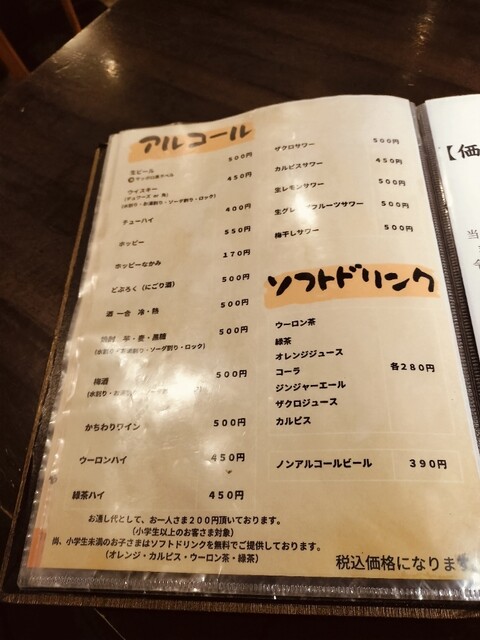 アルコール
生ビール 500円
サッポロ黒ラベル
ウイスキー 450円
(水割り・お湯割り・ソーダ割り・ロック)
チューハイ 400円
ホッピー 550円
ホッピーなかみ 170円
どぶろく(にごり酒) 500円
酒 一合 冷・熱 500円
焼酎 芋・麦・黒糖 500円
(水割り・お湯割り・ソーダ割り・ロック)
梅酒 500円
(水割り・お湯
かちわりワイン 500円
ウーロンハイ 450円
緑茶ハイ 450円
ザクロサワー 500円
カルピスサワー 450円
生レモンサワー 500円
生グレ フルーツサワー 500円
梅干しサワー 500円
ソフトドリンク
ウーロン茶
緑茶
オレンジジュース
コーラ 各280円
ジンジャーエール
ザクロジュース
カルピス
ノンアルコールビール 390円
お通し代として、お一人さま200円頂いております。
(小学生以上のお客さま対象)
尚、小学生未満のお子さまはソフトドリンクを無料でご提供しております。
(オレンジ・カルピス・ウーロン茶・緑茶)
税込価格になりま
【価
当